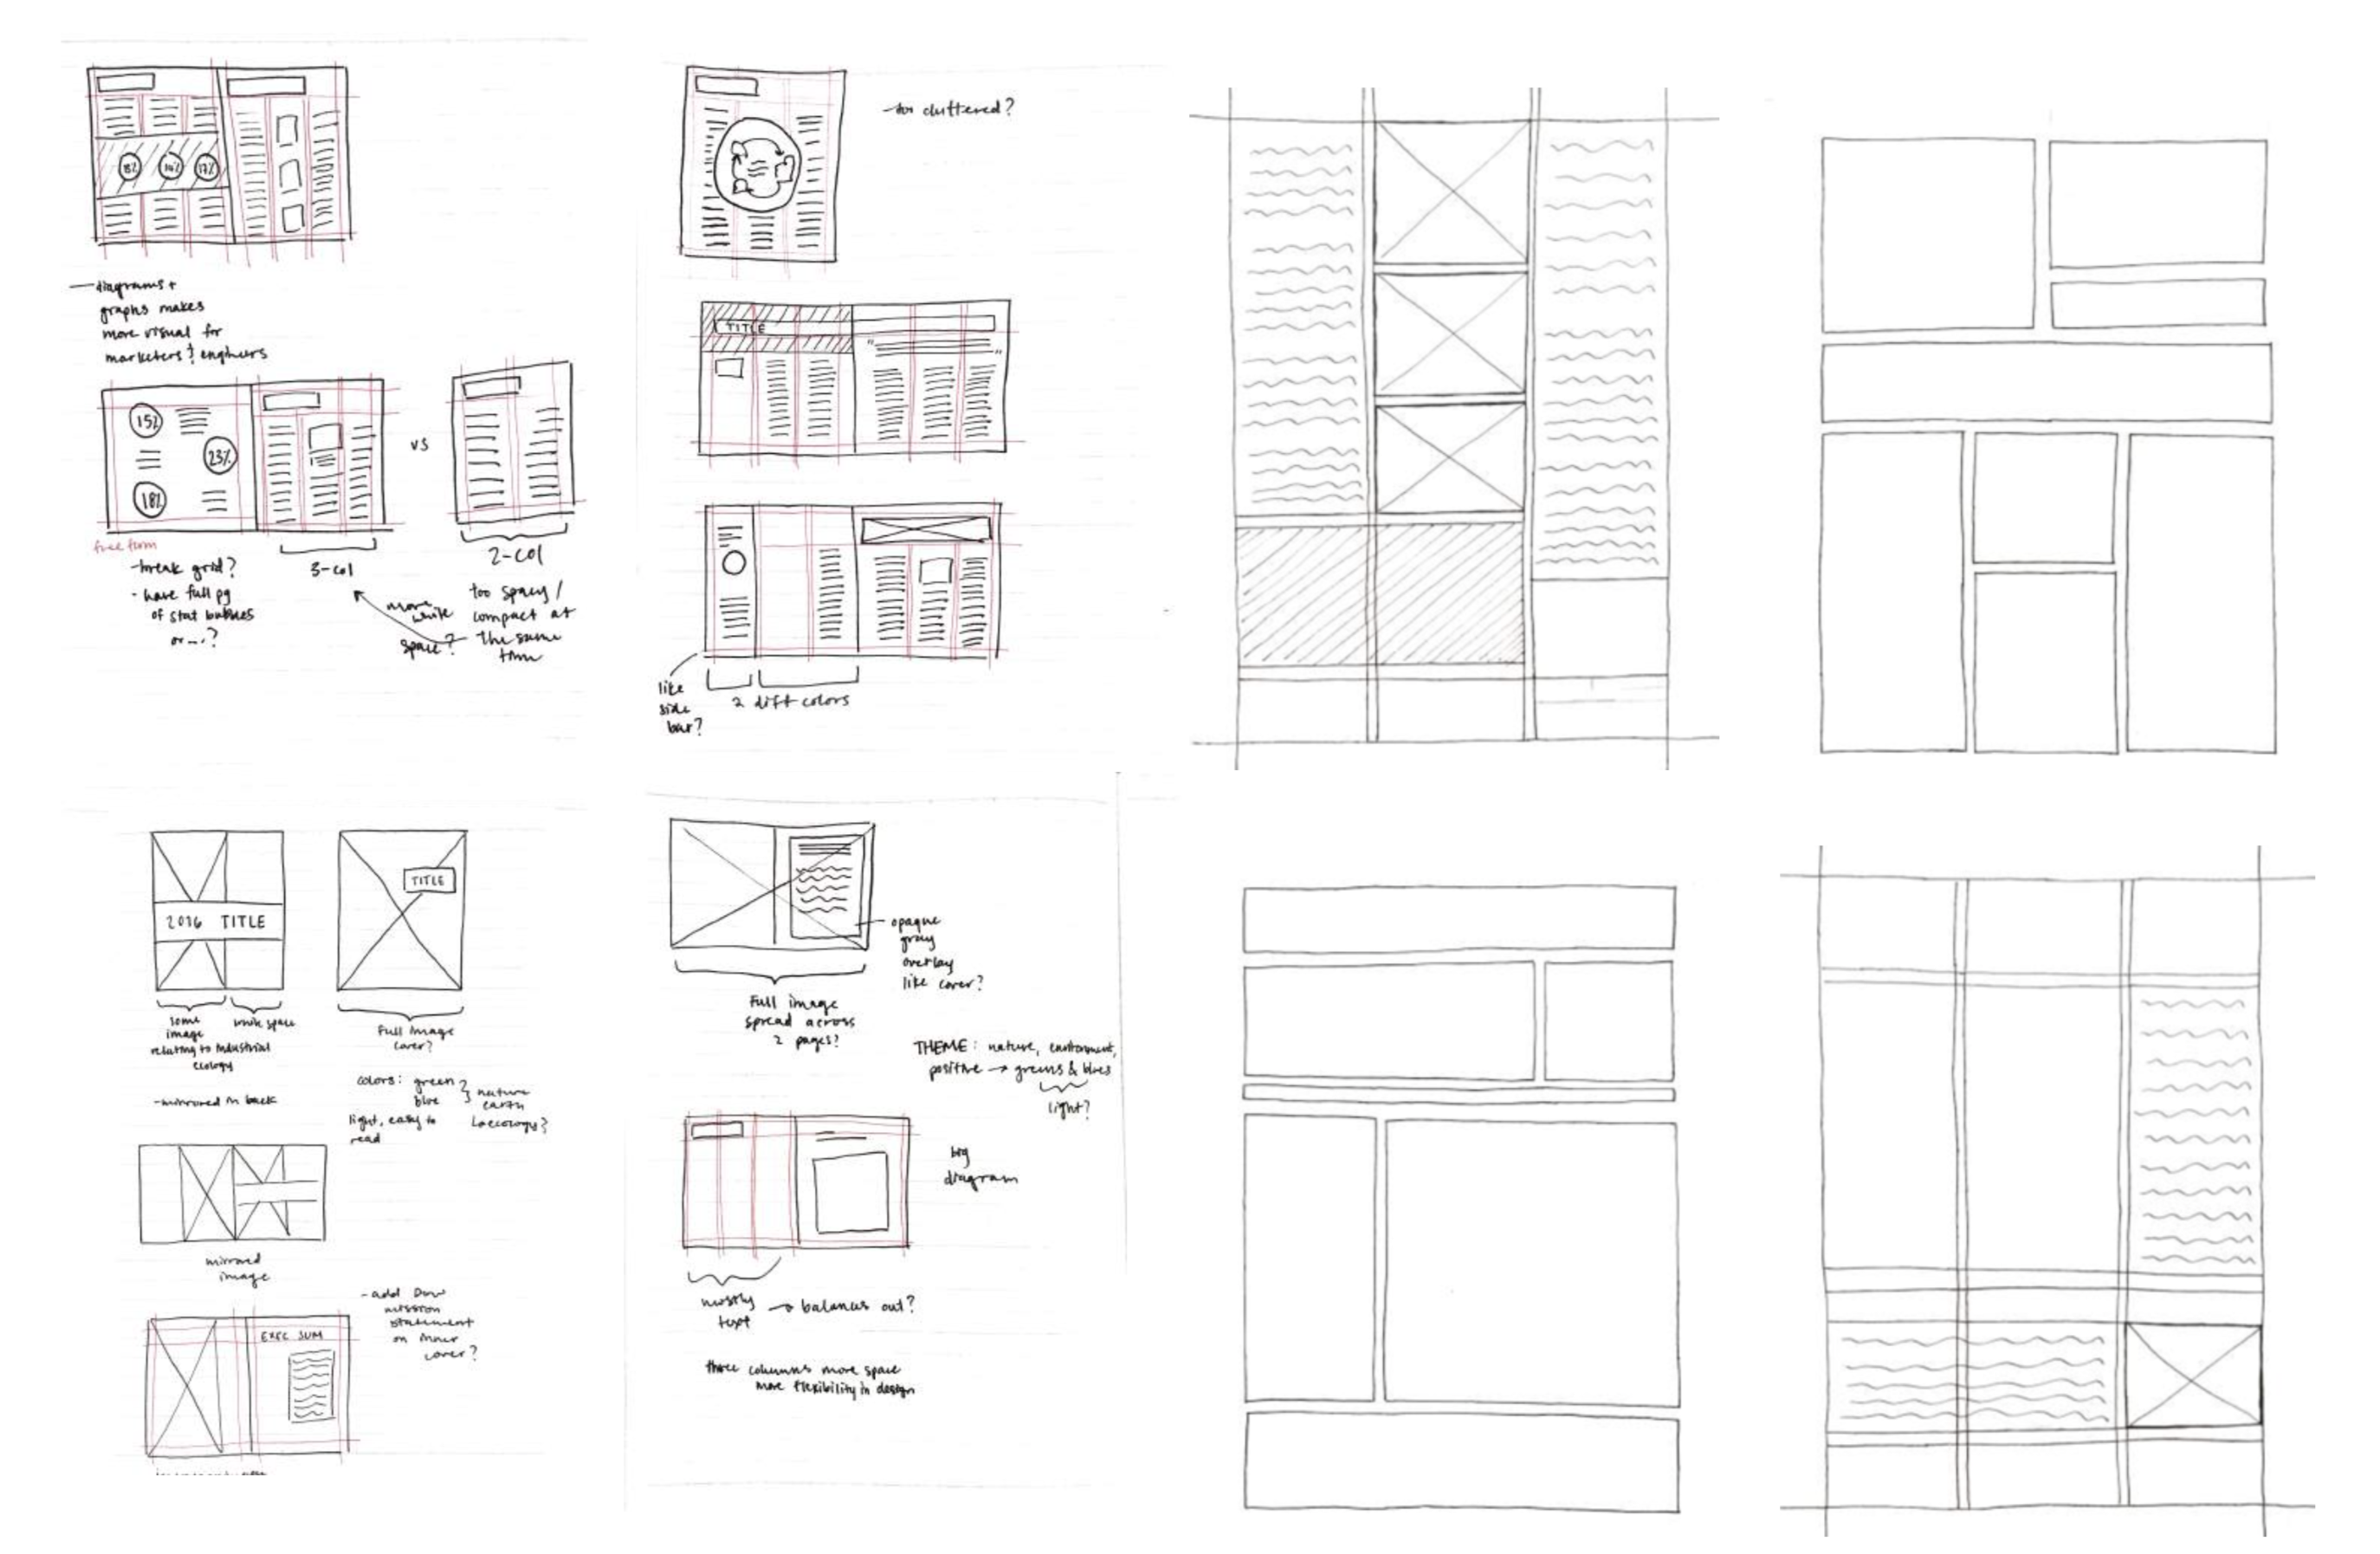 15% 14% 17%
- diagrams +
graphs makes
more visual for
marketers & engineers
15%
23%
18%
vs
free form
- break grid?
- have full pg
of stat bubbles
or ....?
3-col
more
white
space?
2-col
too spacey /
compact at
the same
time
- too cluttered?
TITLE
" "
like
side
bar?
2 diff colors
2016 TITLE
TITLE
some
image
relating to industrial
ecology
white space
full image
cover?
- mirrored on back
colors: green
blue
nature
earth
ecology?
light, easy to
read
mirrored
image
EXEC SUM
- add Dow
mission
statement
on inner
cover?
opaque
gray
overlay
like cover?
Full image
spread across
2 pages?
THEME: nature, environment,
positive → greens & blues
light?
big
diagram
mostly
text
→ balances out?
three columns more space
more flexibility in design